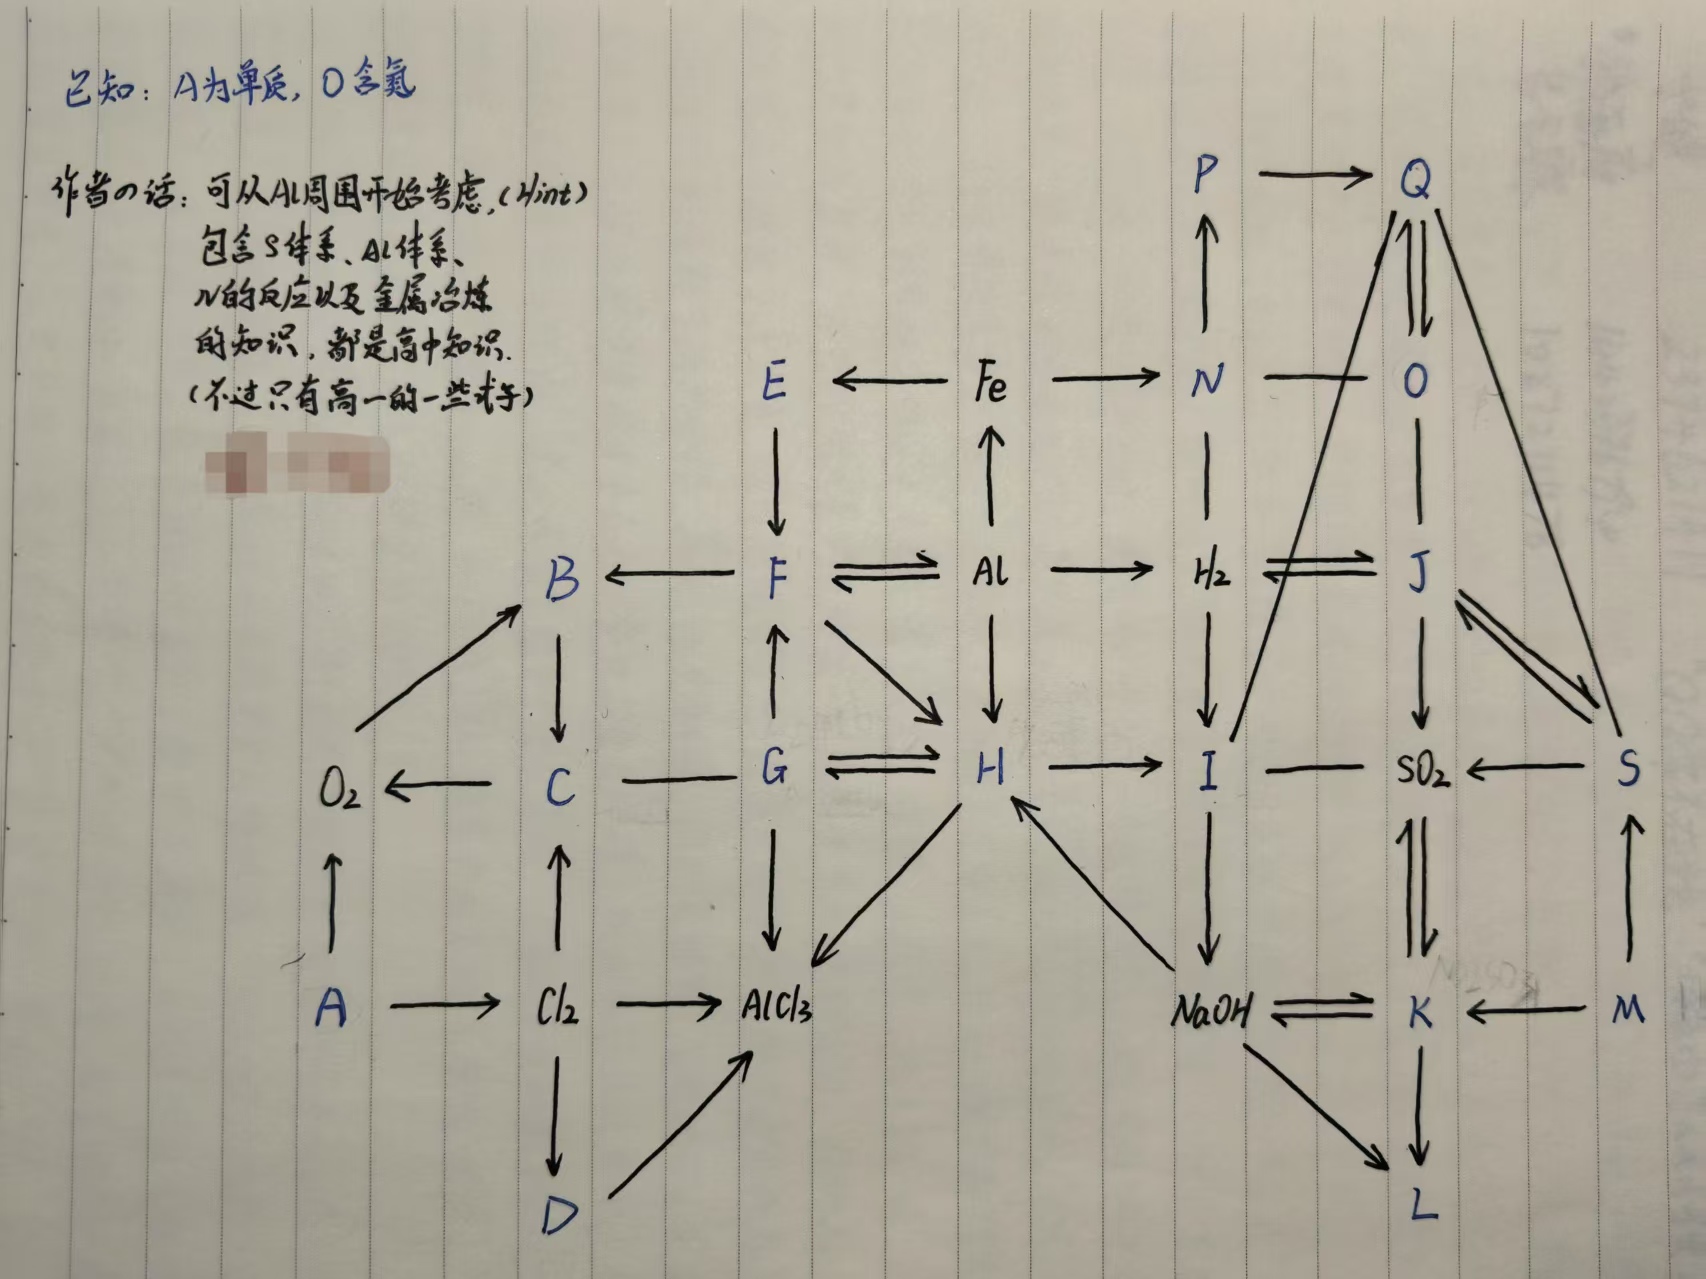 已知：A为单质，O含氮
作者の话：可从Al周围开始考虑，(Hint)
包含S体系、Al体系、
N的反应以及金属冶炼
的知识，都是高中知识.
(不过只有高一的一些式子)
P Q
E Fe N O
B F Al H2 J
O2 C G H I SO2 S
A Cl2 AlCl3 NaOH K M
D L